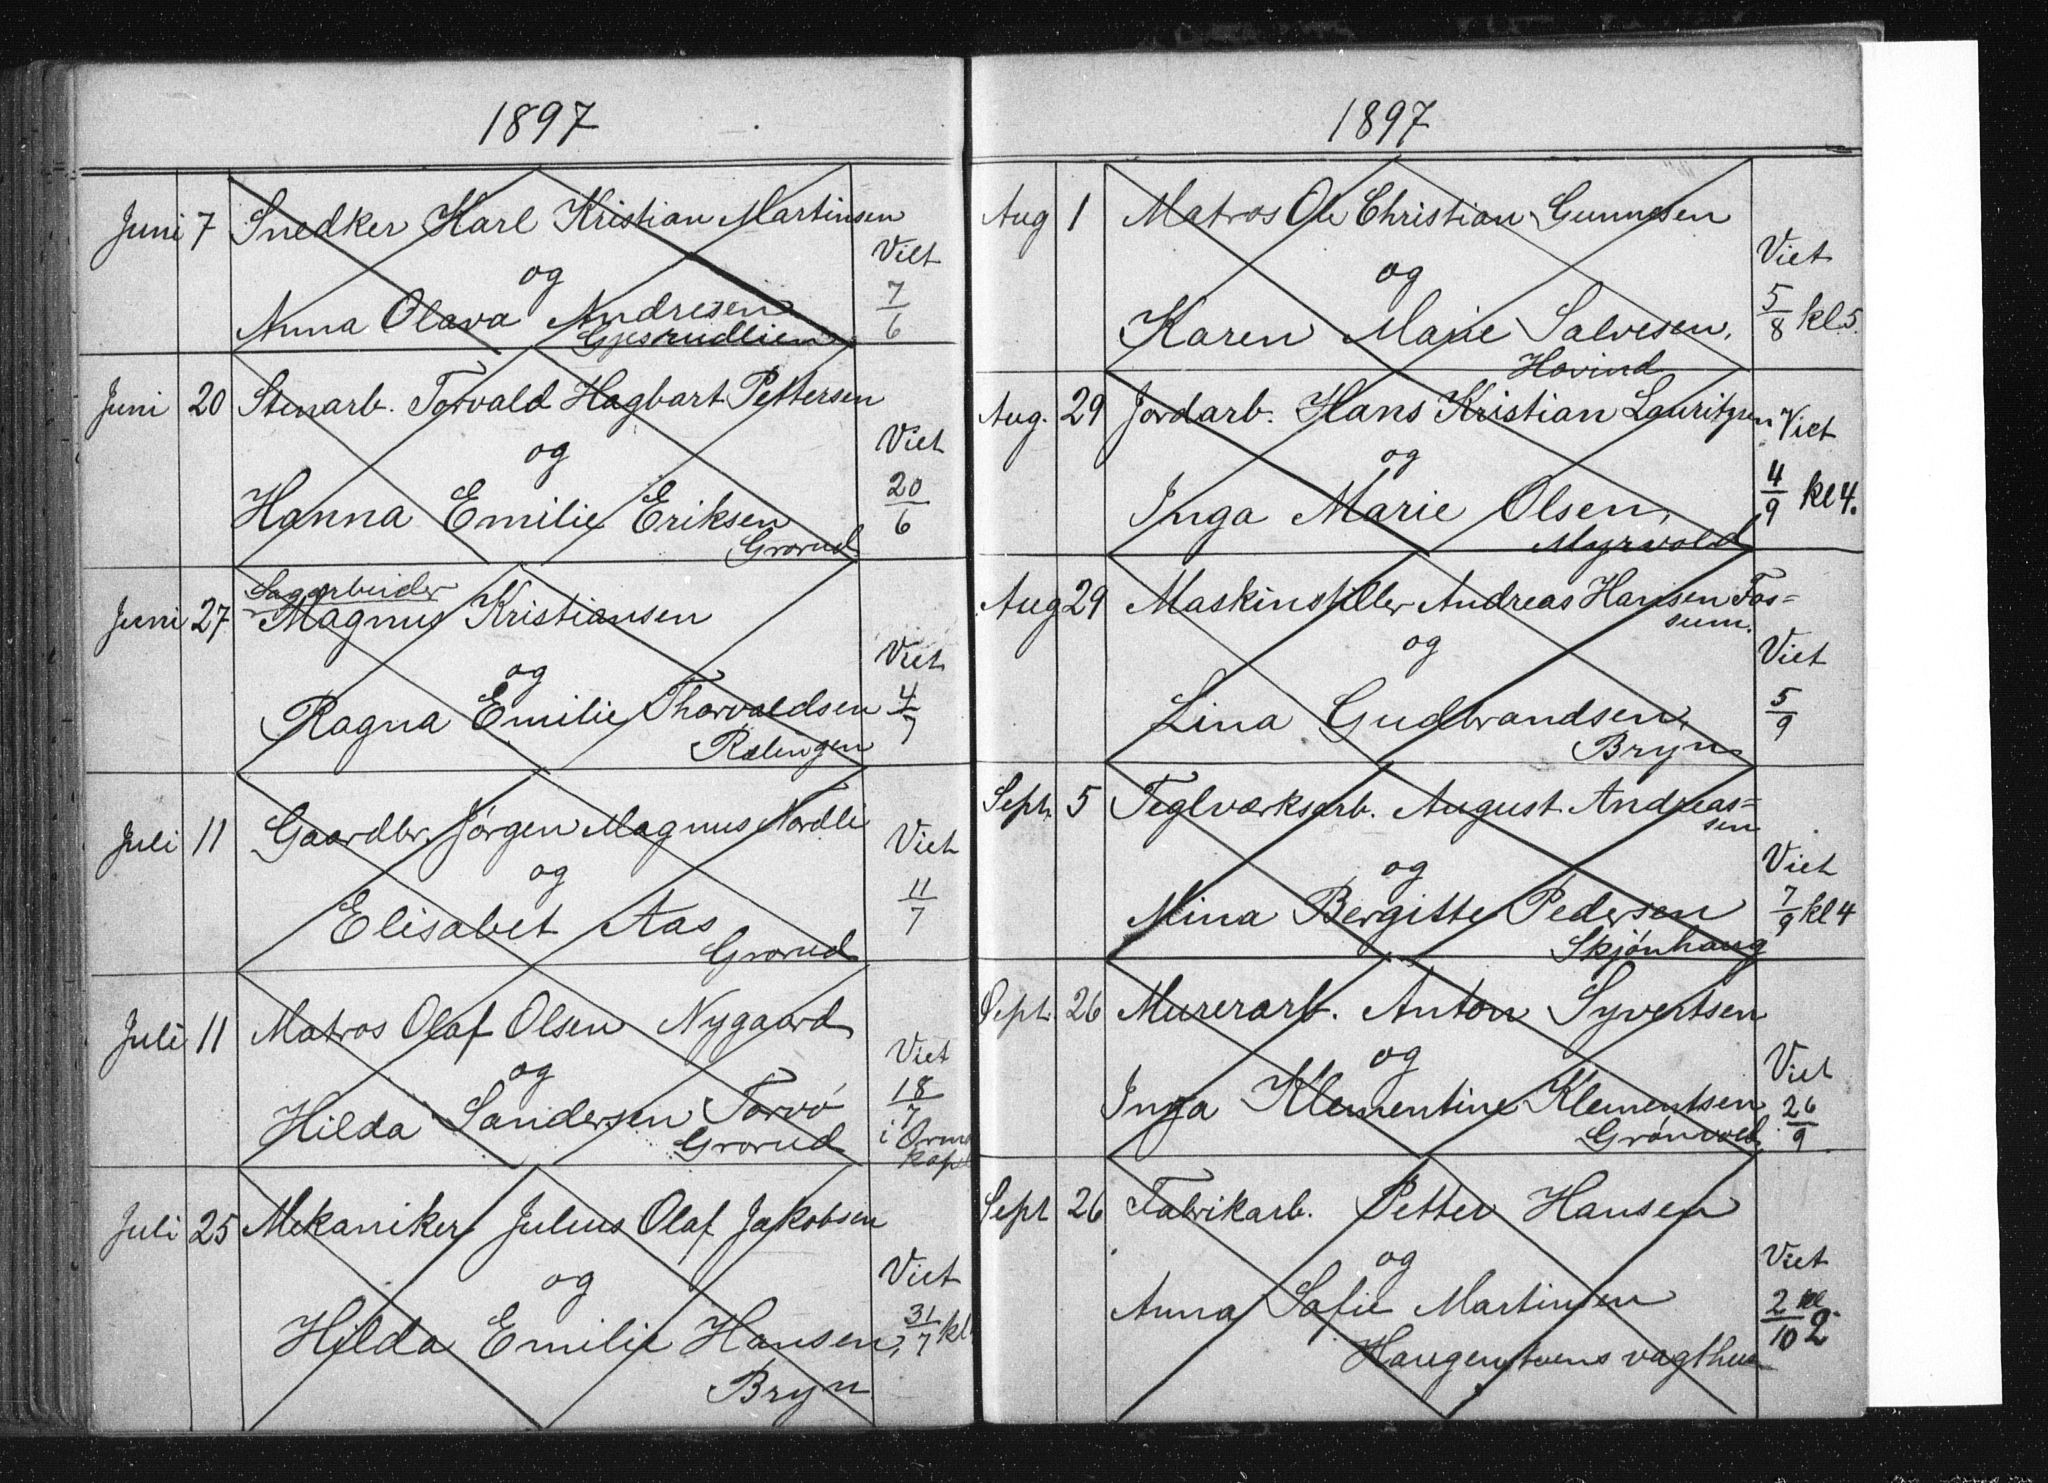 1897
Juni 7 Snedker Karl Kristian Martinsen
og
Viet
Anna Olava Andresen 7/6
Gjesrudlien
Juni 20 Stenarb. Torvald Hagbart Pettersen
og
Viet
Hanna Emilie Eriksen 20/6
Grorud
Sagarbeider
Juni 27 Magnus Kristiansen
og
Viet
Ragna Emilie Thorvaldsen 4/7
Rælingen
Juli 11 Gaardbr. Jörgen Magnus Nordli
Viet
og
Elisabet Aas 11/7
Grorud
Juli 11 Matros Olaf Olsen Nygaard
Viet
og
Hilda Sandersen Torvö 18/7
Grorud i
Juli 25 Mekaniker Julius Olaf Jakobsen
og Viet
Hilda Emilie Hansen, 31/7 kl
Bryn
1897
Aug 1 Matros Ole Christian Gunnesen
og Viet
Karen Marie Salvesen, 5/8 kl 5.
Hovind
Aug. 29 Jordarb. Hans Kristian Lauritzen Viet
og
Inga Marie Olsen, 4/9 kl 4.
Myrvold
Aug 29 Maskinstiller Andreas Hansen Fos=
sum.
og Viet
Lina Gudbrandsen, 5/9
Bryn
Sept. 5 Teglværksarb. August Andreas=
sen
og Viet
Mina Bergitte Pedersen 7/9 kl 4
Skjönhaug
Sept. 26 Murerarb. Anton Syvertsen
og Viet
Inga Klementine Klementsen 26/9
Grönvold
Sept 26 Fabrikarb. Petter Hansen
og Viet
Anna Sofie Martinsen 2/10 kl 2.
Haugenstuens vagthus